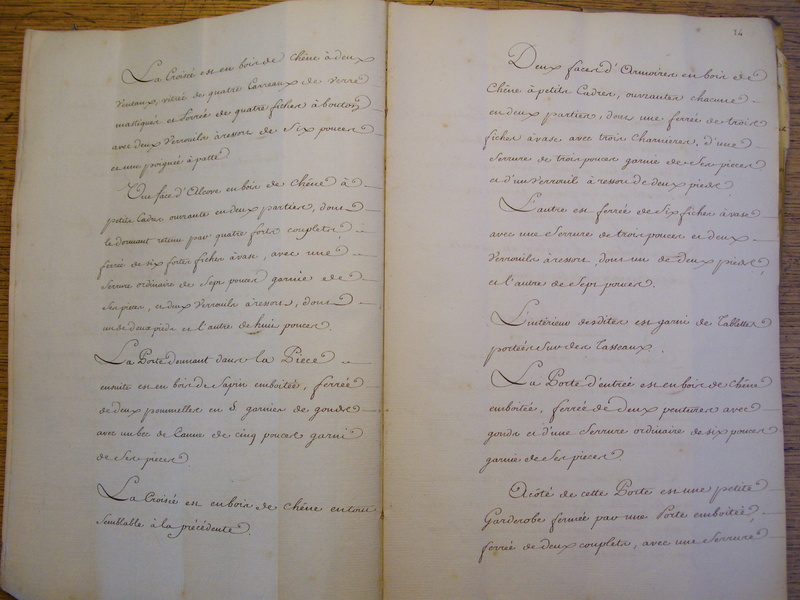 La Croisée est en bois de Chêne à deux
Venteaux, vitrée de quatre Carreaux de verre
mastiqués et ferrée de quatre fiches à bouton
avec deux Verrouils à ressort de Six pouces
et une poignée à patte
Une face d'Alcove en bois de Chêne à
petits Cadres ouvrante en deux parties, dont
le dormant retenu par quatre forts couplets,
ferrée de six fortes fiches à vase, avec une
Serrure ordinaire de Sept pouces garnie de
Ses pieces, et deux Verrouils à ressorts, dont
un de deux pieds et l'autre de huit pouces.
La Porte donnant dans la Piece
ensuite est en bois de Sapin emboitée, ferrée
de deux poumelles en S garnies de gonds
avec un bec de Canne de cinq pouces garni
de Ses pieces
La Croisée est en bois de Chêne en tout
Semblable à la précédente
14
Deux faces d'Armoires en bois de
Chêne à petits Cadres, ouvrantes chacune
en deux parties, dont une ferrée de trois
fiches à vase avec trois Charnieres, d'une
Serrure de trois pouces garnie de Ses pieces
et d'un Verrouil à ressort de deux pieds
L'autre est ferrée de Six fiches à vase
avec une Serrure de trois pouces et deux
Verrouils à ressort dont un de deux pieds,
et l'autre de Sept pouces.
L'intérieur desdites est garni de Tablettes
portées Sur des Tasseaux.
La Porte d'entrée est en bois de Chêne
emboitée, ferrée de deux pentures avec
gonds et d'une Serrure ordinaire de six pouces
garnie de Ses pieces
A côté de cette Porte est une petite
Garderobe fermée par une Porte emboitée,
ferrée de deux couplets, avec une Serrure